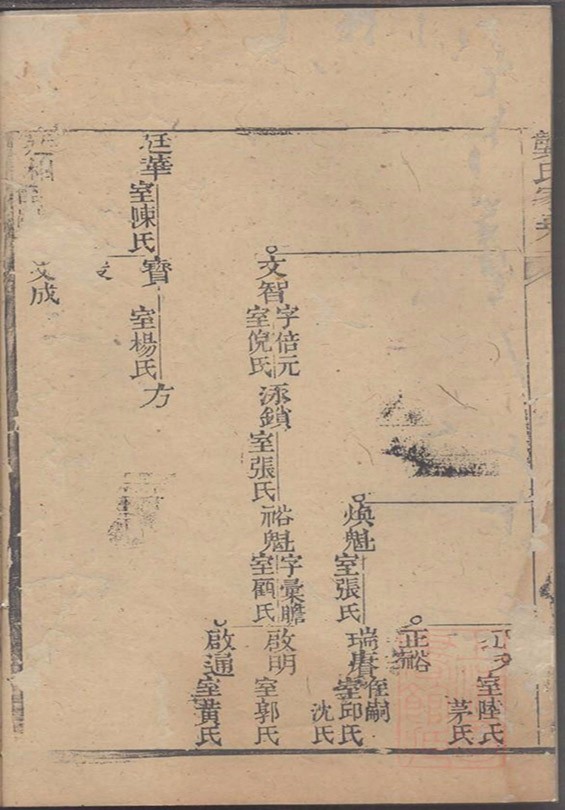 龔氏家
室陸氏
茅氏
正裕
煥魁
室張氏
瑞賡
侄嗣
室邱氏
沈氏
文智
字倍元
室倪氏
添鎖
室張氏
裕魁
字彙瞻
室顧氏
啟明
室郭氏
啟通
室黃氏
廷華
室陳氏
寶
室楊氏
方
文成